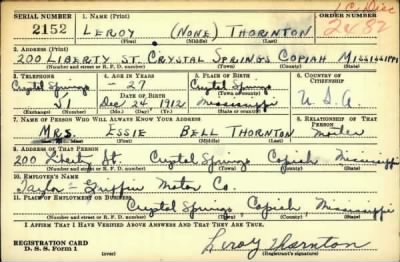 SERIAL NUMBER 1. NAME (Print) ORDER NUMBER
2152 LEROY (NONE) THORNTON
(First) (Middle) (Last)
2. ADDRESS (Print)
200 LIBERTY ST. CRYSTAL SPRINGS COPIAH MISSISSIPPI
(Number and street or R. F. D. number) (Town) (County) (State)
3. TELEPHONE 4. AGE IN YEARS 5. PLACE OF BIRTH 6. COUNTRY OF CITIZENSHIP
Crystal Springs 27 Crystal Springs
DATE OF BIRTH (Town or county)
J1 Dec 24, 1912 Mississippi U.S.A.
(Exchange) (Number) (Mo.) (Day) (Yr.) (State or country)
7. NAME OF PERSON WHO WILL ALWAYS KNOW YOUR ADDRESS 8. RELATIONSHIP OF THAT PERSON
MRS. ESSIE BELL THORNTON Mother
(Mr., Mrs., Miss) (First) (Middle) (Last)
9. ADDRESS OF THAT PERSON
200 Liberty St. Crystal Springs Copiah Mississippi
(Number and street or R. F. D. number) (Town) (County) (State)
10. EMPLOYER'S NAME
Taylor-Griffin Motor Co.
11. PLACE OF EMPLOYMENT OR BUSINESS
Crystal Springs, Copiah, Mississippi
(Number and street or R. F. D. number) (Town) (County) (State)
I AFFIRM THAT I HAVE VERIFIED ABOVE ANSWERS AND THAT THEY ARE TRUE.
REGISTRATION CARD
D. S. S. Form 1 Leroy Thornton
(Registrant's signature)